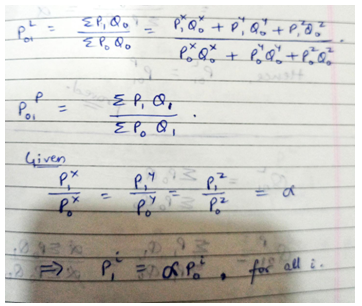 P₀₁ᴸ = ΣP₁Q₀ / ΣP₀Q₀ = (P₁ˣQ₀ˣ + P₁ʸQ₀ʸ + P₁ᶻQ₀ᶻ) / (P₀ˣQ₀ˣ + P₀ʸQ₀ʸ + P₀ᶻQ₀ᶻ).
P₀₁ᴾ = ΣP₁Q₁ / ΣP₀Q₁.
Given
P₁ˣ / P₀ˣ = P₁ʸ / P₀ʸ = P₁ᶻ / P₀ᶻ = α
⇒ P₁ⁱ = αP₀ⁱ, for all i.